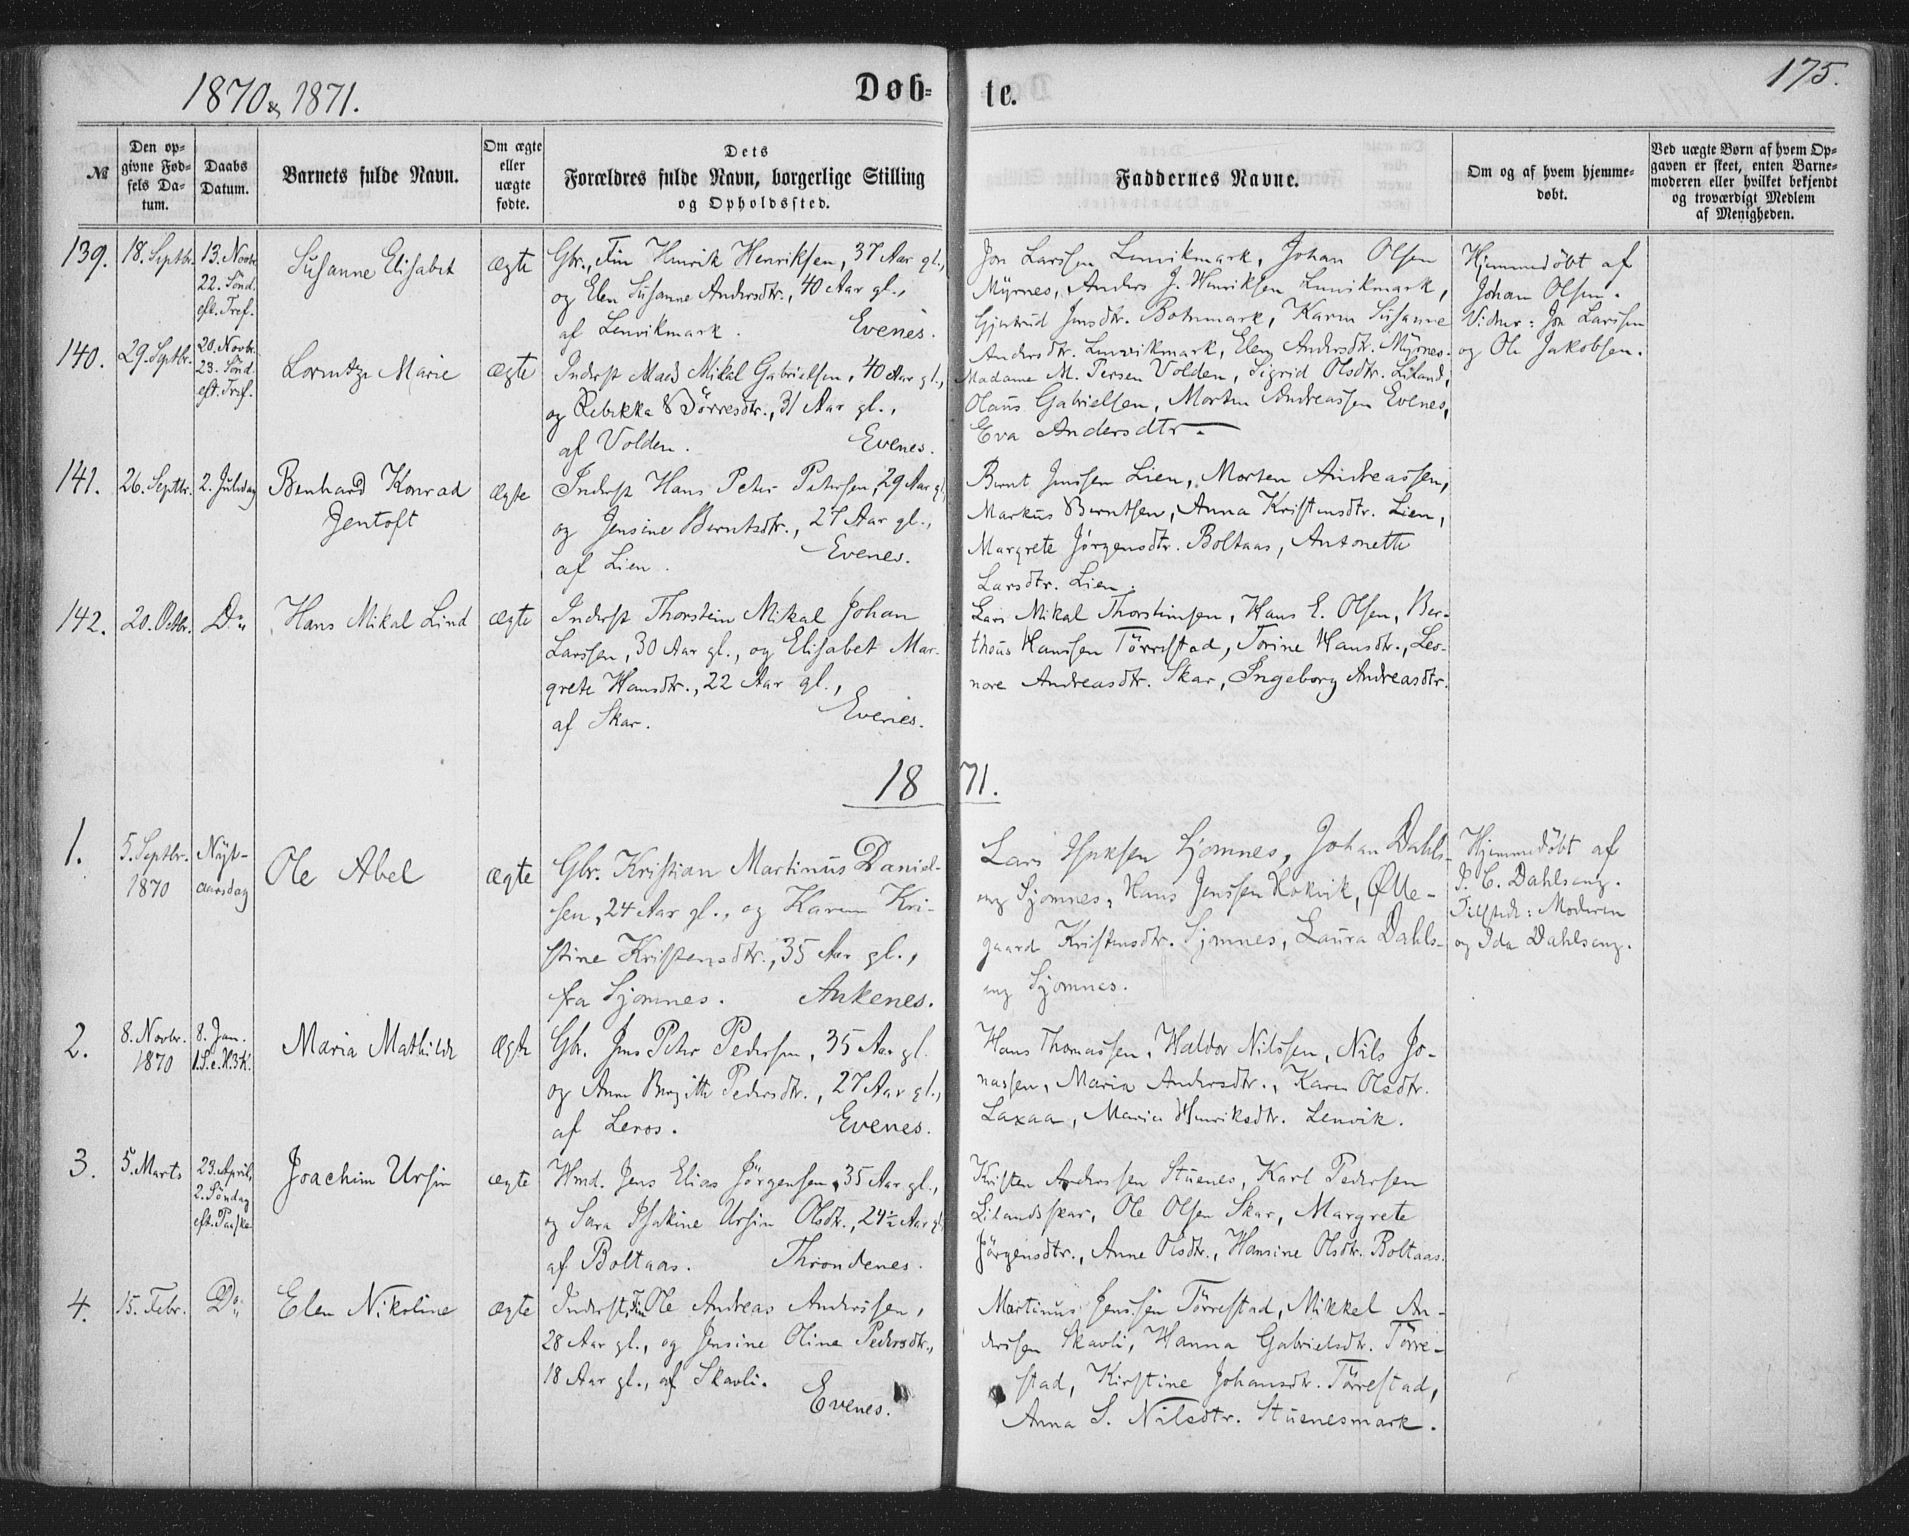 1870 & 1871.
Døb-
te.
175.
№
Den op-
givne Fød-
sels Da-
tum.
Daabs
Datum.
Barnets fulde Navn.
Om ægte
eller
uægte
fødte.
Dets
Forældres fulde Navn, borgerlige Stilling
og Opholdssted.
Faddernes Navne.
Om og af hvem hjemme-
døbt.
Ved uægte Børn af hvem Op-
gaven er skeet, enten Barne-
moderen eller hvilket bekjendt
og troværdigt Medlem
af Menigheden.
139.
18. Septbr.
13. Novbr.
22. Sønd.
eft. Tref.
Susanne Elisabet
ægte
Gbr., Fin Henrik Henriksen, 37 Aar gl.,
og Elen Susanne Andersdtr., 40 Aar gl.,
af Lenvikmark. Evenes.
Jon Larssen Lenvikmark, Johan Olsen
Myrnes, Anders J. Henriksen Lenvikmark,
Gjertrud Jensdtr. Botnmark, Karen Susanne
Andersdtr. Lenvikmark, Elen Andersdtr. Myrnes.
Hjemmedøbt af
Johan Olsen.
Vidner: Jon Larssen
og Ole Jakobsen.
140.
29. Septbr.
20. Novbr.
23. Sønd.
eft. Tref.
Lorentze Marie
ægte
Inderst Mads Mikal Gabrielsen, 40 Aar gl.,
og Rebekka Børresdtr., 31 Aar gl.,
af Volden. Evenes.
Madame M. Persen Volden, Sigrid Olsdtr. Liland,
Olaus Gabrielsen, Morten Andreassen Evenes,
Eva Andersdtr —
141.
26. Septbr.
2. Juledag
Benhard Konrad
Jentoft
ægte
Inderst Hans Peter Petersen, 29 Aar gl.
og Jensine Berntsdtr., 27 Aar gl.,
af Lien. Evenes.
Bernt Jenssen Lien, Morten Andreassen,
Markus Berntsen, Anna Kristensdtr. Lien,
Margrete Jørgensdtr. Boltaas, Antonette
Larsdtr. Lien.
142.
20. Octbr.
Do
Hans Mikal Lind
ægte
Inderst Thorstein Mikal Johan
Larssen, 30 Aar gl., og Elisabet Mar-
grete Hansdtr., 22 Aar gl.,
af Skar. Evenes.
Lars Mikal Thorsteinsen, Hans E. Olsen, Ber-
theus Hanssen Tørrestad, Torine Hansdtr., Leo-
nore Andreasdtr. Skar, Ingeborg Andreasdtr.
1871.
1.
5. Septbr.
1870
Nyt-
aarsdag
Ole Abel
ægte
Gbr. Kristian Martinus Daniel-
sen, 24 Aar gl., og Karen Kri-
stine Kristensdtr., 35 Aar gl.,
fra Sjomnes. Ankenes.
Lars Isaksen Sjomnes, Johan Dahls-
eng Sjomnes, Hans Jenssen Rokvik, Ølle-
gaard Kristensdtr. Sjomnes, Laura Dahls-
eng Sjomnes.
Hjemmedøbt af
J. C. Dahlseng.
Tilstede: Moderen
og Ida Dahlseng.
2.
8. Novbr.
1870
8. Jan.
1. S. e. H. 3 K.
Maria Mathilde
ægte
Gbr. Jens Peter Pedersen, 35 Aar gl.
og Anne Birgitte Pedersdtr., 27 Aar gl.,
af Leros. Evenes.
Hans Thomassen, Haldor Nilssen, Nils Jo-
nassen, Maria Andersdtr., Karen Olsdtr.
Laxaa, Maria Henriksdtr. Lenvik.
3.
5. Marts
23. April,
2. Søndag
eft. Paaske
Joachim Ursin
ægte
Hmd. Jens Elias Jørgensen, 35 Aar gl.,
og Sara Isakine Ursin Olsdtr., 24½ Aar gl.
af Boltaas. Throndenes.
Kristen Anderssen Stuenes, Karl Pedersen
Lilandsskar, Ole Olsen Skar, Margrete
Jørgensdtr., Anne Olsdtr., Hansine Olsdtr. Boltaas.
4.
15. Febr.
Do
Elen Nikoline
ægte
Inderst, Fin Ole Andreas Anderssen,
28 Aar gl., og Jensine Oline Pedersdtr.,
18 Aar gl., af Skavli.
Evenes.
Martinus Jenssen Tørrestad, Mikkel An-
derssen Skavli, Hanna Gabrielsdtr. Tørre-
stad, Kirstine Johansdtr. Tørrestad,
Anna S. Nilsdtr. Stuenesmark.